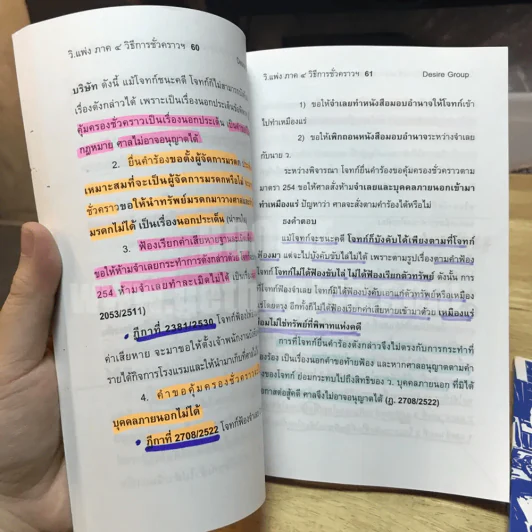 วิ.แพ่ง ภาค ๔ วิธีการชั่วคราวฯ 60
บริษัท ดังนี้ แม้โจทก์ชนะคดี โจทก์ก็ไม่สามารถ
เรื่องดังกล่าวได้ เพราะเป็นเรื่องนอกประเด็น
คุ้มครองชั่วคราวเป็นเรื่องนอกประเด็น
กฎหมาย ศาลไม่อาจอนุญาตได้
2. ยื่นคำร้องขอตั้งผู้จัดการมรดก
เหมาะสมที่จะเป็นผู้จัดการมรดกหรือไม่
ชั่วคราวขอให้นำทรัพย์มรดกมาวางศาล
มรดกไม่ได้ เป็นเรื่องนอกประเด็น
3. ฟ้องเรียกค่าเสียหายฐาน
ขอให้ห้ามจำเลยกระทำการดังกล่าวด้วย
254 ห้ามจำเลยทำละเมิดไม่ได้ เป็นเรื่อง
2053/2511)
• ฎีกาที่ 2381/2530
ค่าเสียหาย จะมาขอให้ตั้งเจ้าพนักงาน
รายได้กิจการโรงแรมและให้นำมาเก็บที่ศาล
4. คำขอคุ้มครองชั่วคราว
บุคคลภายนอกไม่ได้
• ฎีกาที่ 2708/2522 โจทก์ฟ้อง
วิ.แพ่ง ภาค ๔ วิธีการชั่วคราวฯ 61 Desire Group.
1) ขอให้จำเลยทำหนังสือมอบอำนาจให้โจทก์เข้า
ไปทำเหมืองแร่
2) ขอให้เพิกถอนหนังสือมอบอำนาจระหว่างจำเลย
กับนาย ว.
ระหว่างพิจารณา โจทก์ยื่นคำร้องขอคุ้มครองชั่วคราวตาม
มาตรา 254 ขอให้ศาลสั่งห้ามจำเลยและบุคคลภายนอกเข้ามา
ทำเหมืองแร่ ปัญหาว่า ศาลจะสั่งตามคำร้องได้หรือไม่
ธงคำตอบ
แม้โจทก์จะชนะคดี โจทก์ก็บังคับได้เพียงตามที่โจทก์
ฟ้องมา แต่จะไปบังคับขับไล่ไม่ได้ เพราะตามรูปเรื่องตามคำฟ้อง
โจทก์ โจทก์ไม่ได้ฟ้องขับไล่ ไม่ได้ฟ้องเรียกตัวทรัพย์ ดังนั้น การ
ที่โจทก์ฟ้องจำเลย โจทก์มิได้ฟ้องบังคับเอาแก่ตัวทรัพย์หรือเหมือง
แร่โดยตรง อีกทั้งก็ไม่ได้ฟ้องเรียกค่าเสียหายเข้ามาด้วย เหมืองแร่
ย่อมไม่ใช่ทรัพย์ที่พิพาทแห่งคดี
การที่โจทก์ยื่นคำร้องดังกล่าวจึงไม่ตรงกับการกระทำที่
ฟ้องร้อง เป็นเรื่องนอกคำขอท้ายฟ้อง และหากศาลอนุญาตตามคำ
ขอของโจทก์ ย่อมกระทบไปถึงสิทธิของ ว. บุคคลภายนอก ที่มิได้
โอกาสต่อสู้คดี ศาลจึงไม่อาจอนุญาตได้ (ฎ. 2708/2522)